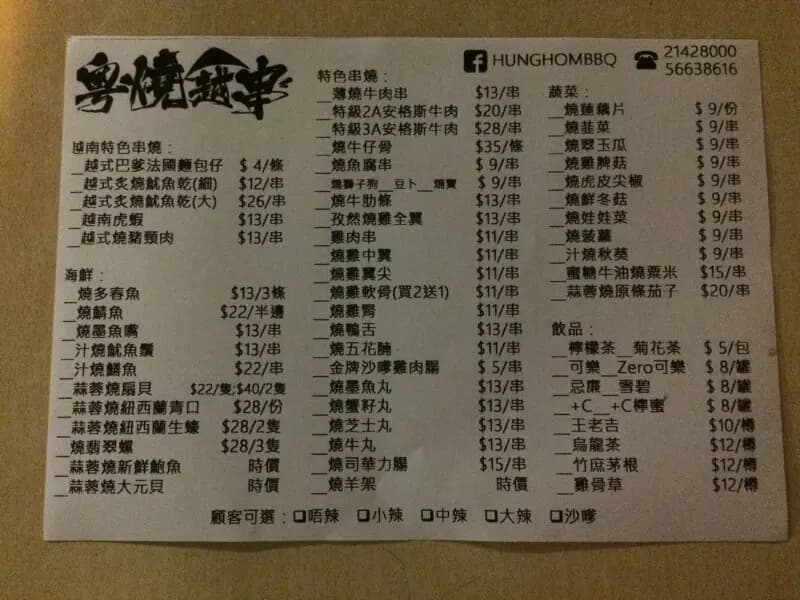 粵燒越串
HUNGHOMBBQ
21428000
56638616
越南特色串燒：
_越式巴爹法國麵包仔 $ 4/條
_越式炙燒魷魚乾(細) $12/串
_越式炙燒魷魚乾(大) $26/串
_越南虎蝦 $13/串
_越式燒豬頸肉 $13/串
海鮮：
_燒多春魚 $13/3條
_燒鯖魚 $22/半邊
_燒墨魚嘴 $13/串
_汁燒魷魚鬚 $13/串
_汁燒鱔魚 $22/串
_蒜蓉燒扇貝 $22/隻;$40/2隻
_蒜蓉燒紐西蘭青口 $28/份
_蒜蓉燒紐西蘭生蠔 $28/2隻
_燒翡翠螺 $28/3隻
_蒜蓉燒新鮮鮑魚 時價
_蒜蓉燒大元貝 時價
特色串燒：
_薄燒牛肉串 $13/串
_特級2A安格斯牛肉 $20/串
_特級3A安格斯牛肉 $28/串
_燒牛仔骨 $35/條
_燒魚腐串 $ 9/串
_燒獅子狗__豆卜__燒賣 $ 9/串
_燒牛肋條 $13/串
_孜然燒雞全翼 $13/串
_雞肉串 $11/串
_燒雞中翼 $11/串
_燒雞翼尖 $11/串
_燒雞軟骨(買2送1) $11/串
_燒雞腎 $11/串
_燒鴨舌 $13/串
_燒五花腩 $11/串
_金牌沙嗲雞肉腸 $ 5/串
_燒墨魚丸 $13/串
_燒蟹籽丸 $13/串
_燒芝士丸 $13/串
_燒牛丸 $13/串
_燒司華力腸 $15/串
_燒羊架 時價
蔬菜：
_燒蓮藕片 $ 9/份
_燒韮菜 $ 9/串
_燒翠玉瓜 $ 9/串
_燒雞脾菇 $ 9/串
_燒虎皮尖椒 $ 9/串
_燒鮮冬菇 $ 9/串
_燒娃娃菜 $ 9/串
_燒菠蘿 $ 9/串
_汁燒秋葵 $ 9/串
_蜜糖牛油燒粟米 $15/串
_蒜蓉燒原條茄子 $20/串
飲品：
_檸檬茶__菊花茶 $ 5/包
_可樂__Zero可樂 $ 8/罐
_忌廉__雪碧 $ 8/罐
_+C__+C檸蜜 $ 8/罐
_王老吉 $10/樽
_烏龍茶 $12/樽
_竹庶茅根 $12/樽
_雞骨草 $12/樽
顧客可選：☐唔辣 ☐小辣 ☐中辣 ☐大辣 ☐沙嗲